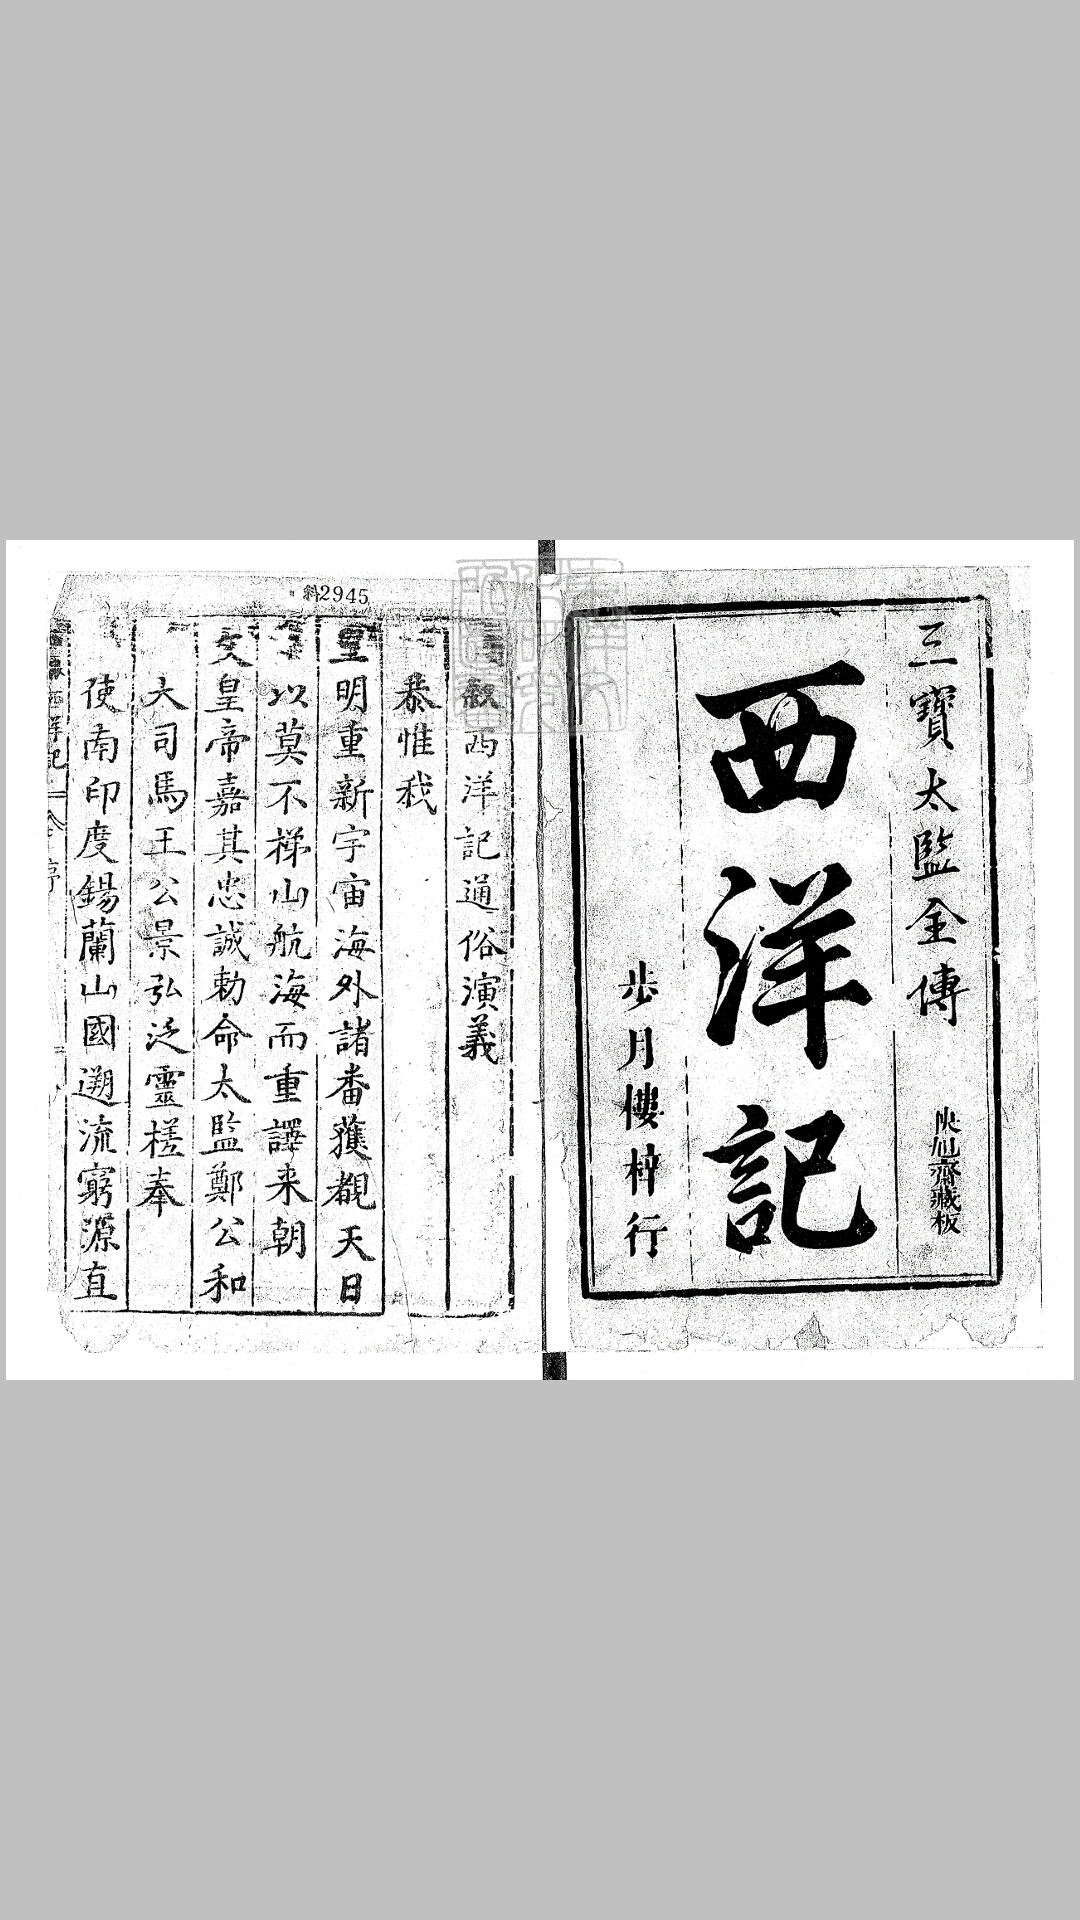 三寶太監全傳
映旭齋藏板
西洋記
步月樓梓行
斜2945
敘西洋記通俗演義
恭惟我
皇明重新宇宙海外諸畨獲覩天日
以莫不梯山航海而重譯来朝
文皇帝嘉其忠誠勅命太監鄭公和
大司馬王公景弘泛靈槎奉
使南印度錫蘭山國遡流窮源直
西洋記